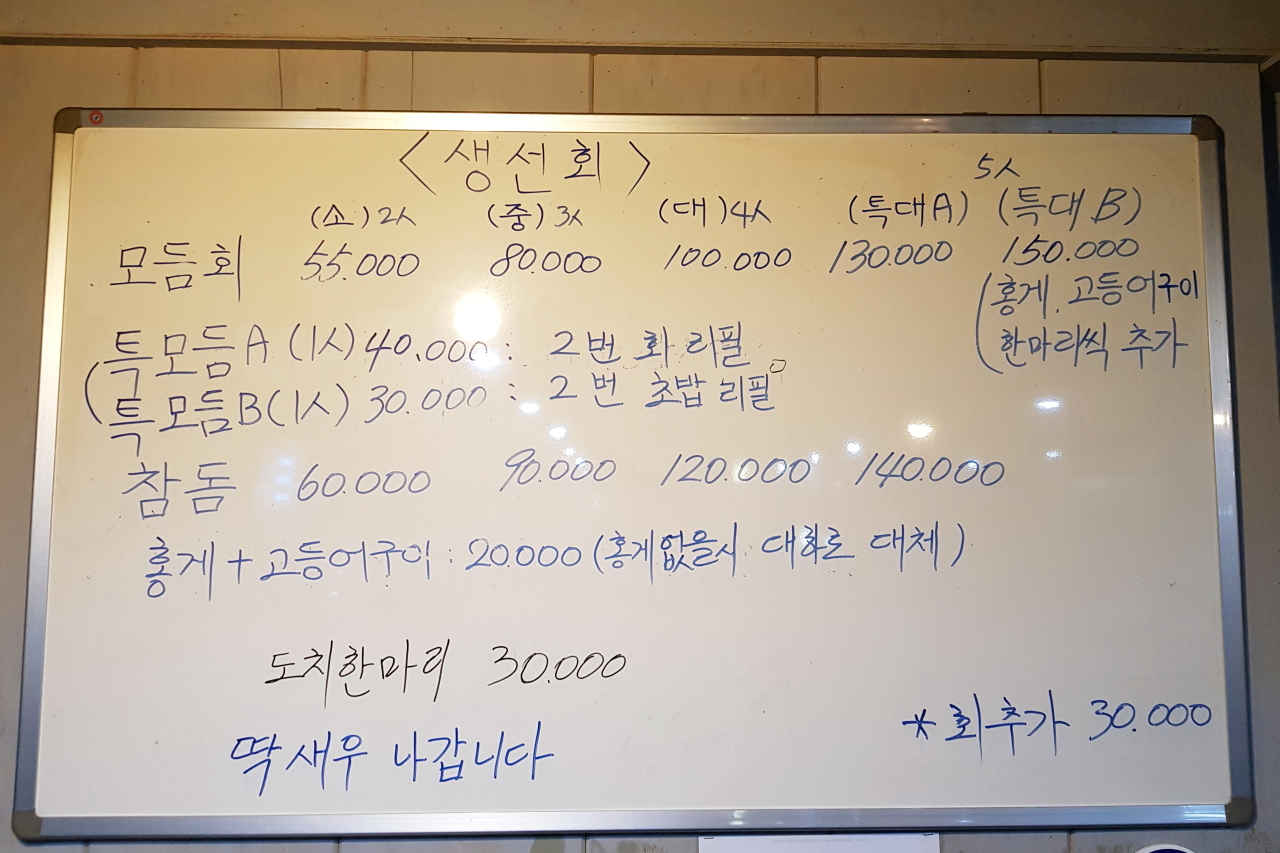 <생선회>
5人
(소)2人 (중)3人 (대)4人 (특대A) (특대B)
모듬회 55.000 80.000 100.000 130.000 150.000
(홍게, 고등어구이
한마리씩 추가
(특모듬A (1人) 40.000 : 2번 회 리필
특모듬B (1人) 30.000 : 2번 초밥 리필
참돔 60.000 90.000 120.000 140.000
홍게+고등어구이 : 20.000 (홍게없을시 대하로 대체)
도치한마리 30.000
딱새우 나갑니다
*회추가 30.000